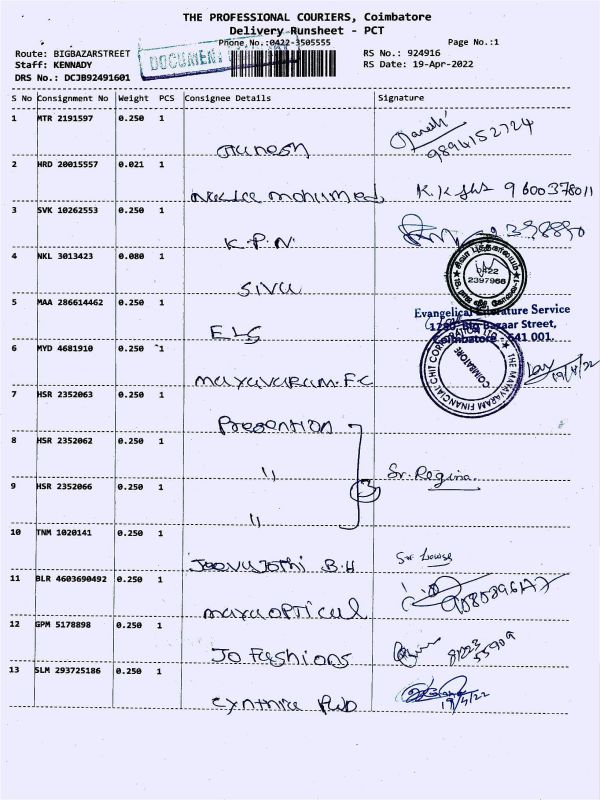 THE PROFESSIONAL COURIERS, Coimbatore
Delivery Runsheet - PCT
Phone No.:0422-3505555
Page No.:1
Route: BIGBAZARSTREET
RS No.: 924916
Staff: KENNADY
DOCUMENT
RS Date: 19-Apr-2022
DRS No.: DCJB92491601
S No Consignment No Weight PCS Consignee Details Signature
1 MTR 2191597 0.250 1
9894152724
2 HRD 20015557 0.021 1
mohamed K.K 9600378011
3 SVK 10262553 0.250 1
K.P.N.
4 NKL 3013423 0.080 1
Siva
0422
2397966
5 MAA 286614462 0.250 1
ELS
Evangelical Literature Service
Big Bazaar Street,
Coimbatore - 641 001.
6 MYD 4681910 0.250 1
mayavaram.F.C
THE MAYAVARAM FINANCIAL CHIT CORPORATION LTD.
COIMBATORE
19/4/22
7 HSR 2352063 0.250 1
Presention
8 HSR 2352062 0.250 1
"
3
Sr. Regina.
9 HSR 2352066 0.250 1
"
10 TNM 1020141 0.250 1
Jeevajothi B.H
11 BLR 4603690492 0.250 1
maya optical
12 GPM 5178898 0.250 1
Jo Fashions
81223
55909
13 SLM 293725186 0.250 1
19/4/22